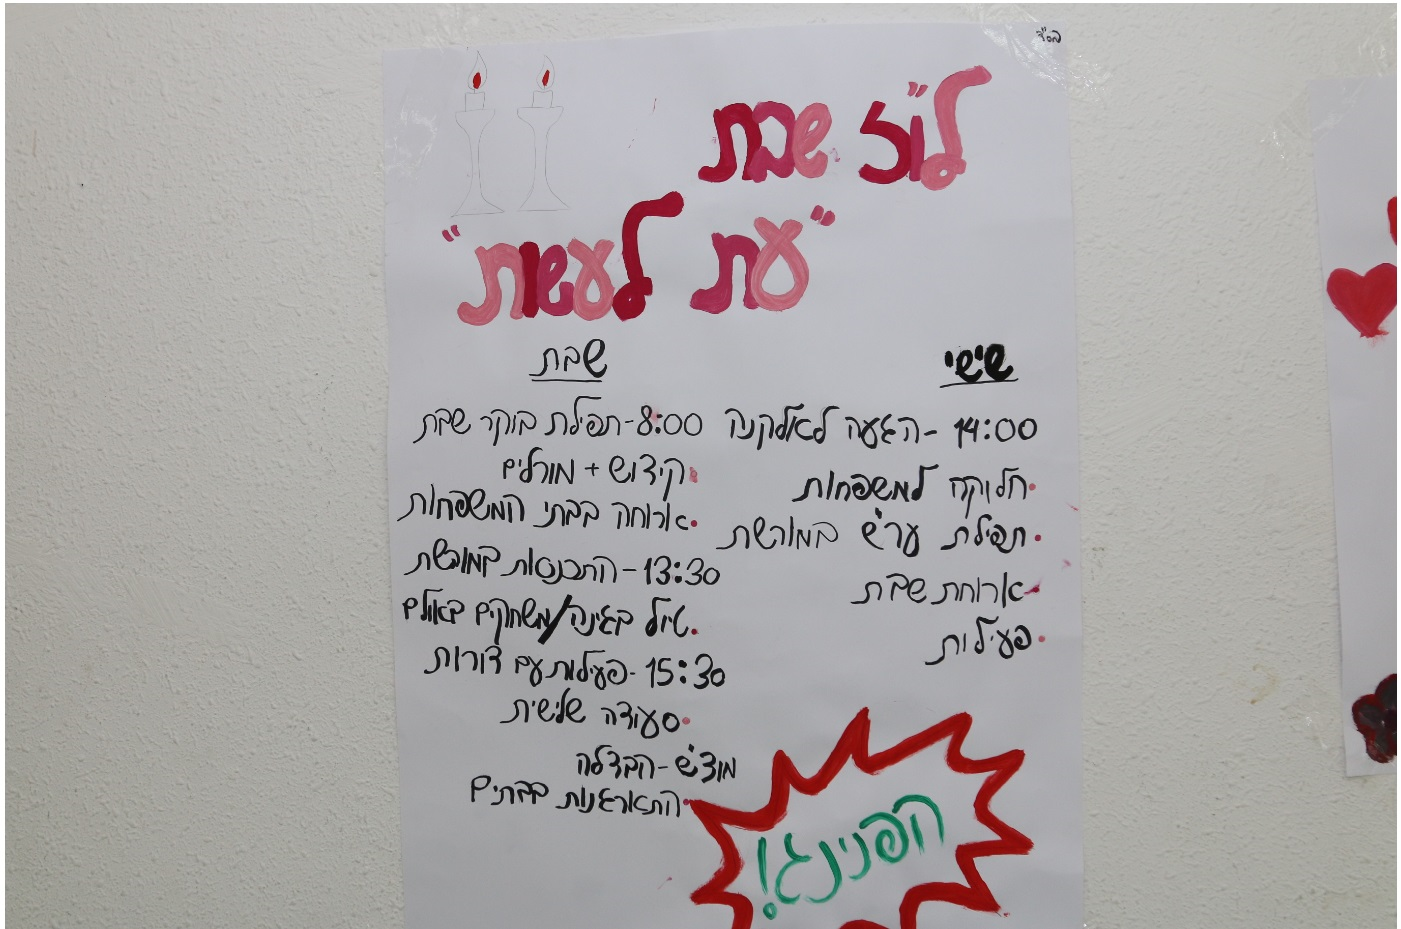 בס"ד
לו"ז שבת
"עת לעשות"
שישי
14:00 - הגעה לאלקנה
• חלוקה למשפחות
• תפילת ער"ש במורשת
• ארוחת שבת
• פעילות
שבת
8:00 - תפילת בוקר שבת
• קידוש + מורלים
• ארוחה בבתי המשפחות
13:30 - התכנסות במורשת
• טיול בגינה/משחקים באולם
15:30 - פעילות עם דורות
• סעודה שלישית
מוצ"ש - הבדלה
• התארגנות בבתים
הפנינג!